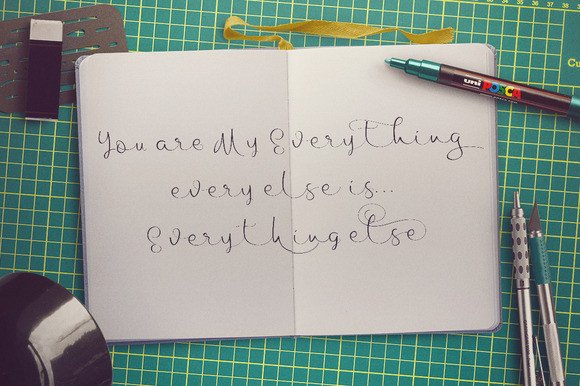 You are My Everything
every else is...
Everything else
uni POSCA
Cu